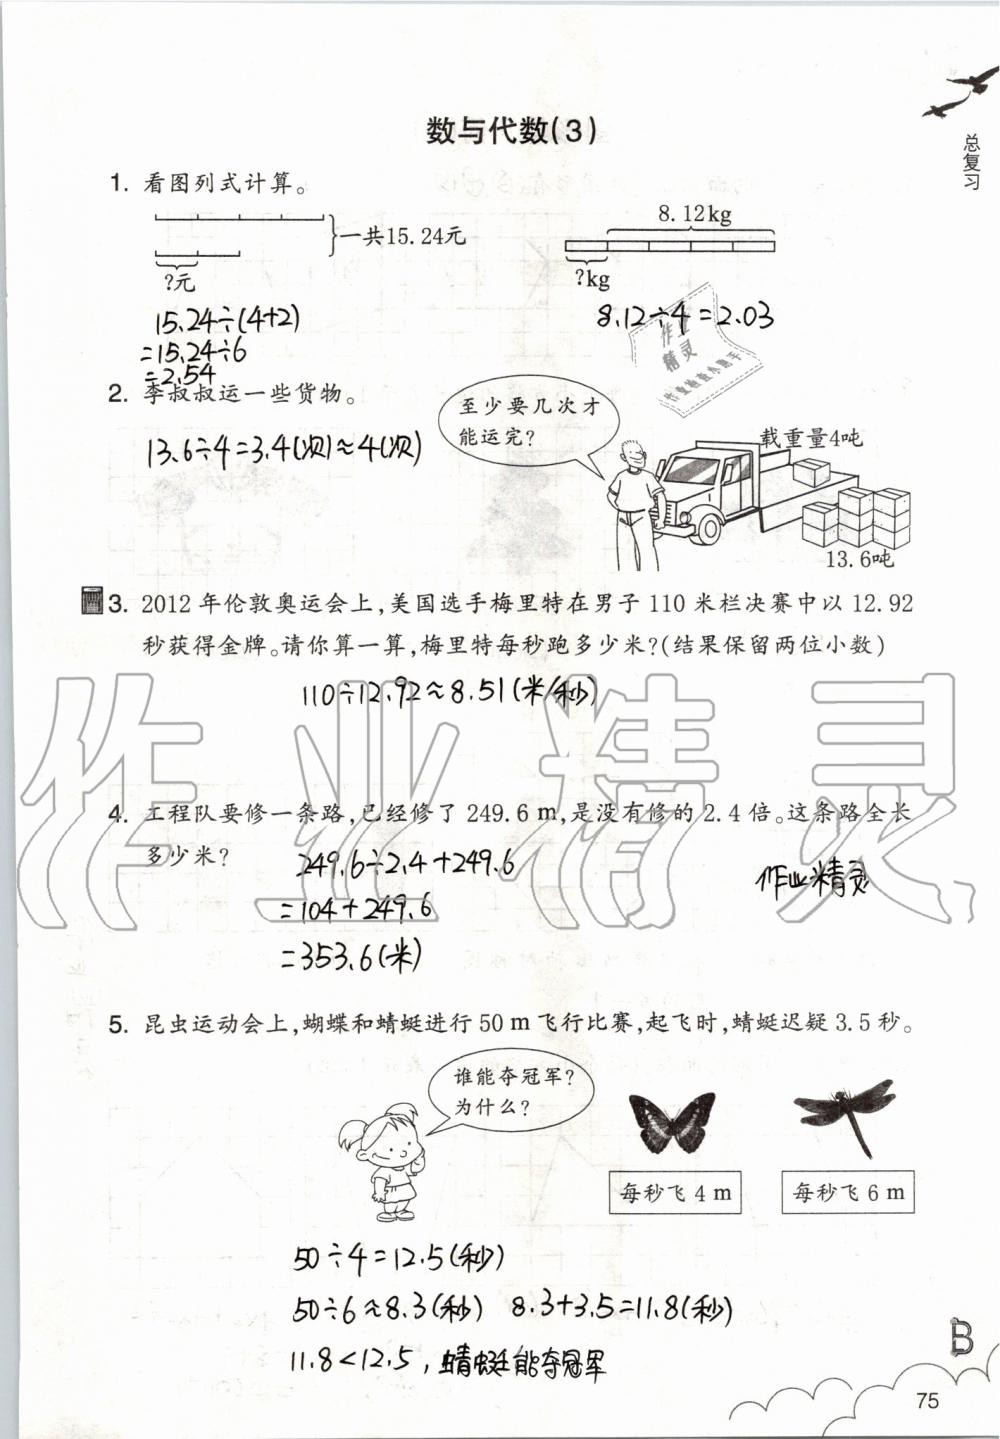 总复习
数与代数(3)
1. 看图列式计算。
一共15.24元
?元
8.12kg
?kg
15.24÷(4+2)
=15.24÷6
=2.54
8.12÷4=2.03
作业精灵
作业检查小助手
2. 李叔叔运一些货物。
至少要几次才
能运完?
载重量4吨
13.6吨
13.6÷4=3.4(次)≈4(次)
3. 2012年伦敦奥运会上,美国选手梅里特在男子110米栏决赛中以12.92
秒获得金牌。请你算一算,梅里特每秒跑多少米?(结果保留两位小数)
110÷12.92≈8.51(米/秒)
作业精灵
4. 工程队要修一条路,已经修了249.6 m,是没有修的2.4倍。这条路全长
多少米?
249.6÷2.4+249.6
=104+249.6
=353.6(米)
作业精灵
5. 昆虫运动会上,蝴蝶和蜻蜓进行50 m飞行比赛,起飞时,蜻蜓迟疑3.5秒。
谁能夺冠军?
为什么?
每秒飞4 m
每秒飞6 m
50÷4=12.5(秒)
50÷6≈8.3(秒) 8.3+3.5=11.8(秒)
11.8<12.5,蜻蜓能夺冠军
B
75